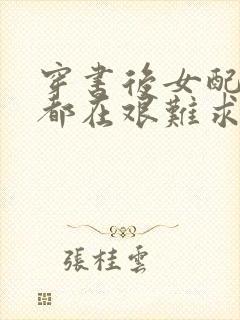 穿書後女配
都在艱難求
張桂雲